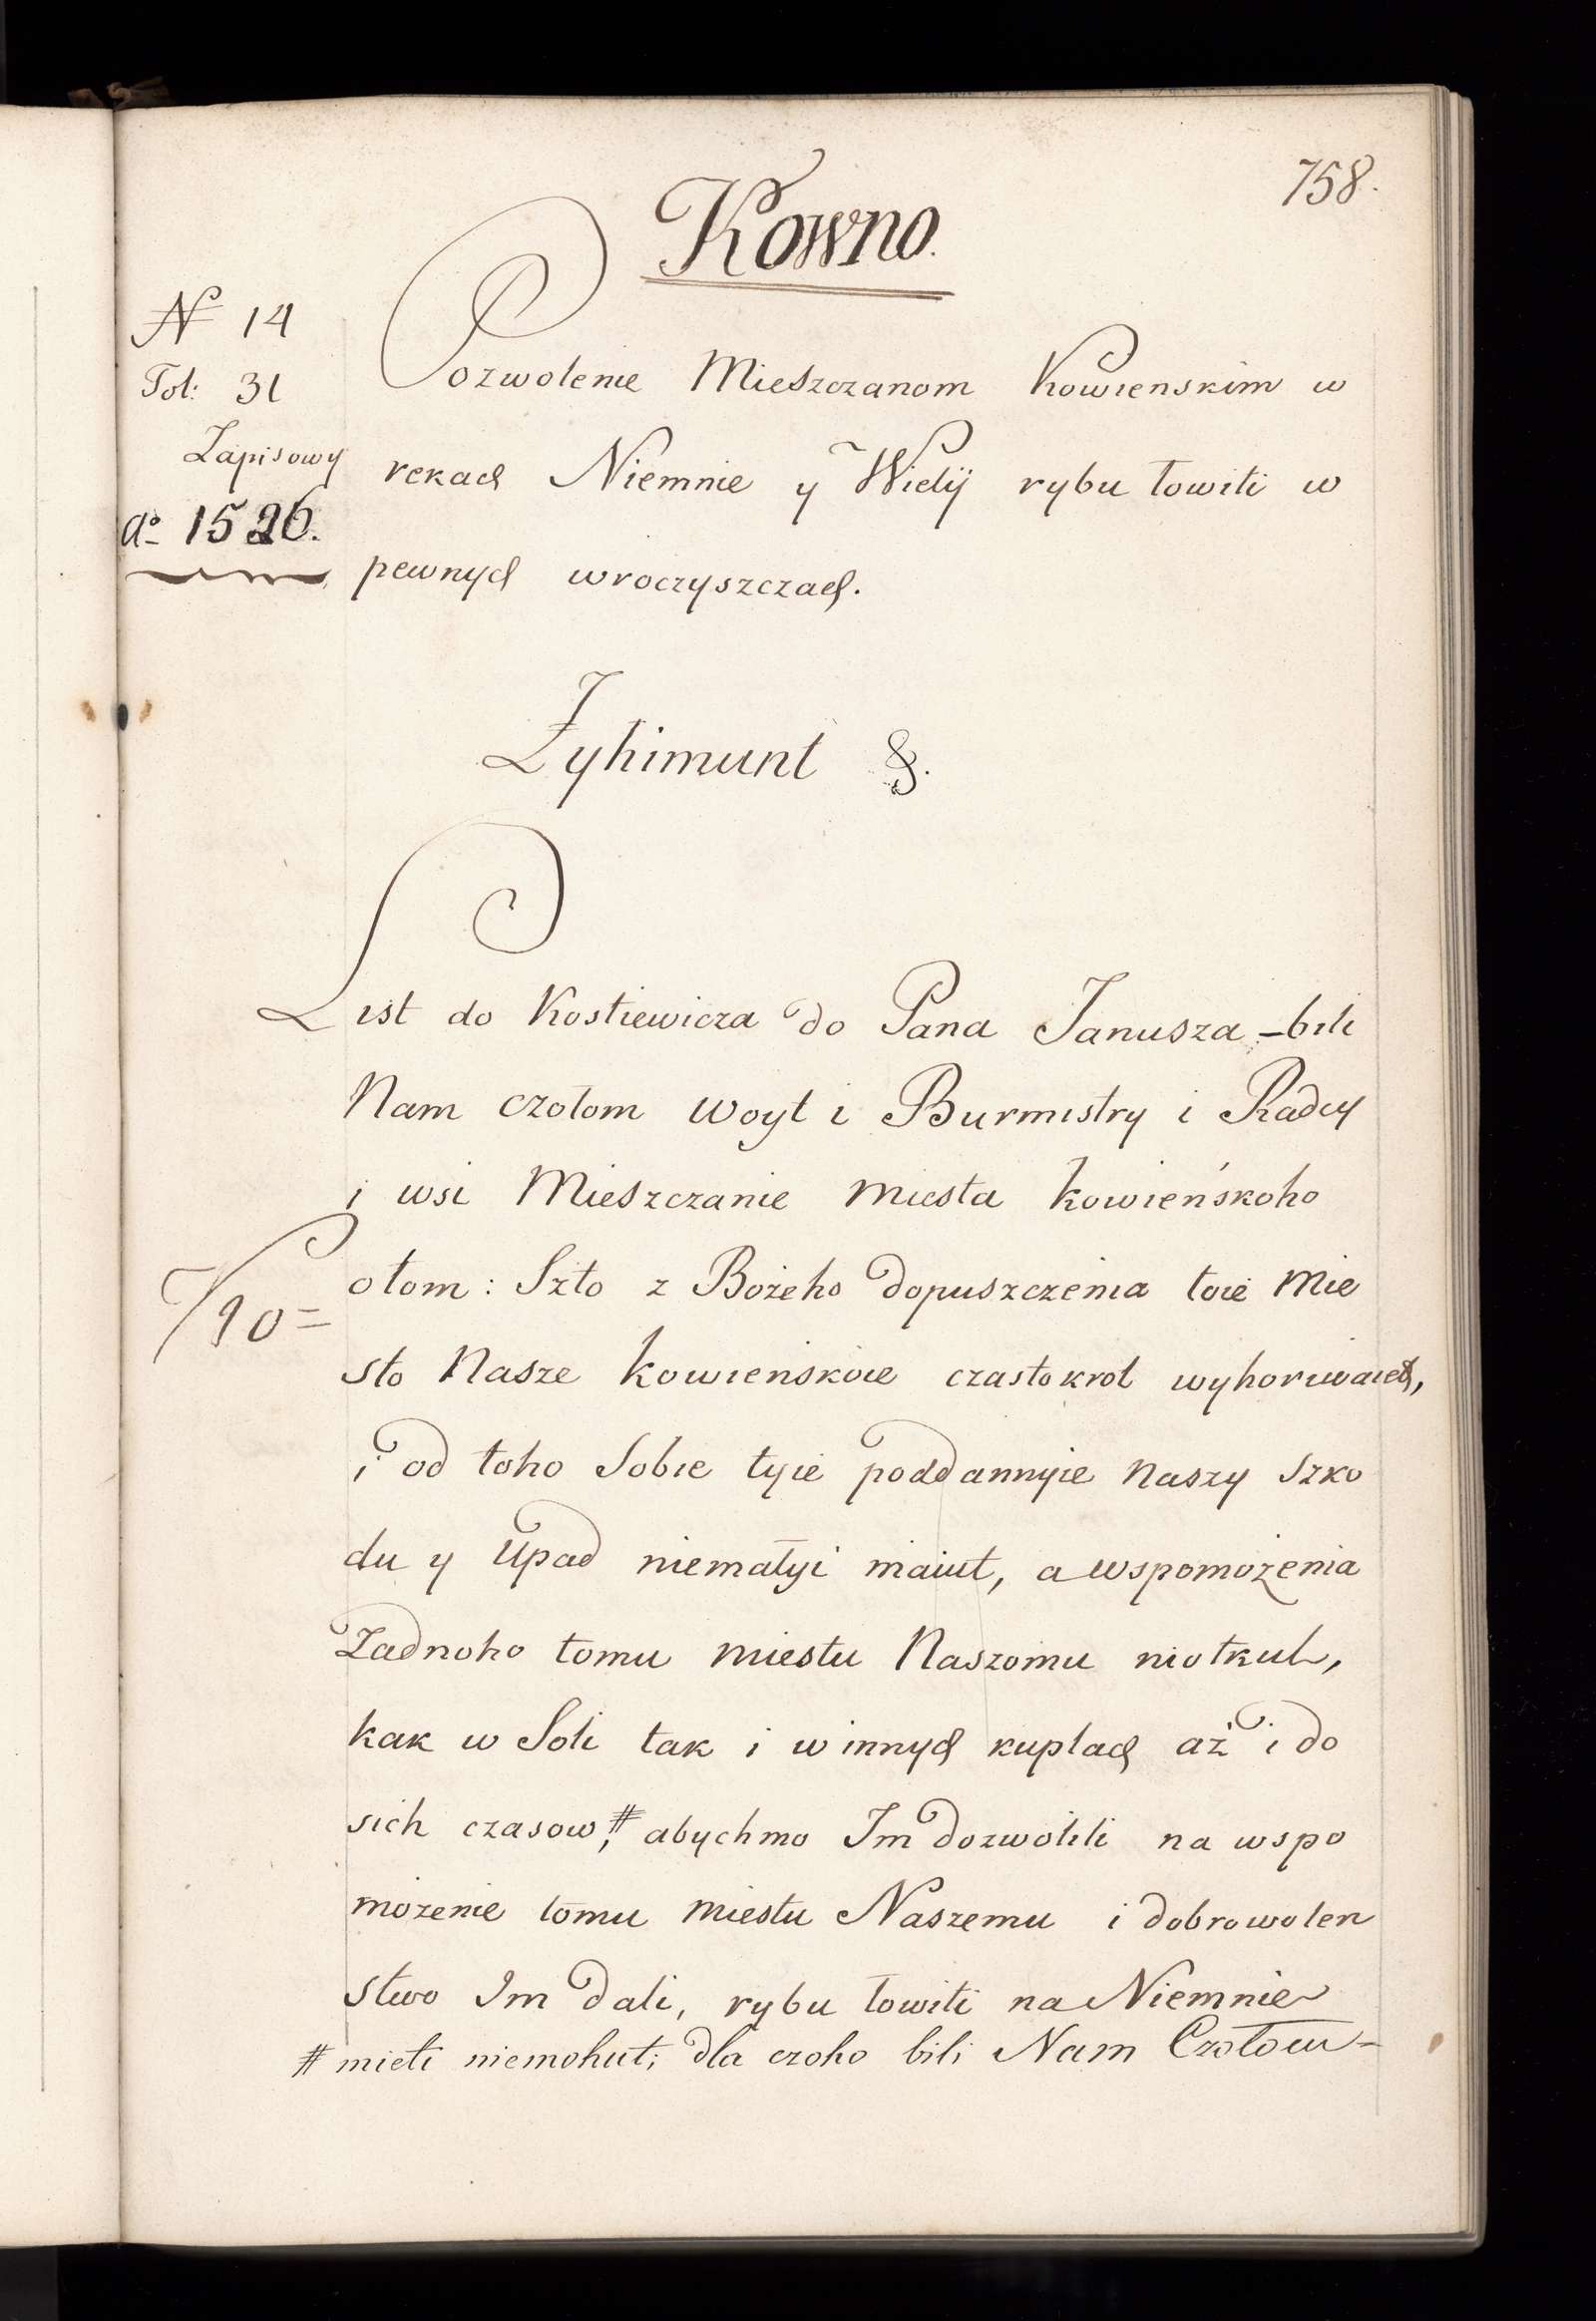 758.
Kowno.
N 14
Fol: 31
Zapisowy
a° 1526.
Pozwolenie Mieszczanom Kowienskim w
rekach Niemnie y Wielij rybu łowiti w
pewnych wroczyszczach.
Zyhimunt &.
List do Kostiewicza do Pana Janusza - bili
Nam czołom woyt i Burmistry i Radcy
i wsi Mieszczanie miesta kowieńskoho
o tom: Szto z Bożeho dopuszczenia toie Mie
sto Nasze kowienskoie czastokrot wyhoriwaiet,
i od toho Sobie tyie poddannyie naszy szko
du y upad niemałyi maiut, a wspomożenia
Żadnoho tomu miestu Naszomu niotkul,
kak w Soli tak i w innych kuplach aż i do
sich czasow, # abychmo Im dozwolili na wspo
możenie tomu miestu Naszemu i dobrowolen
stwo Im dali, rybu łowiti na Niemnie
# mieti niemohut; dla czoho bili Nam Czołom -